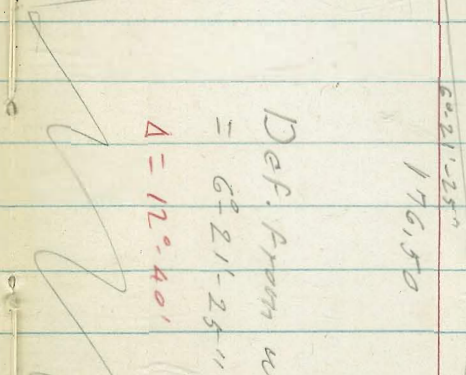 6°-21'-25"
176,50
Def. from
= 6°-21'-25"
Δ = 12°-40'